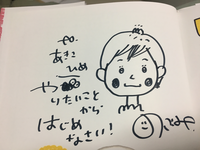 あきこ
ひめ
やりたいこと
から
はじめ
なさい!